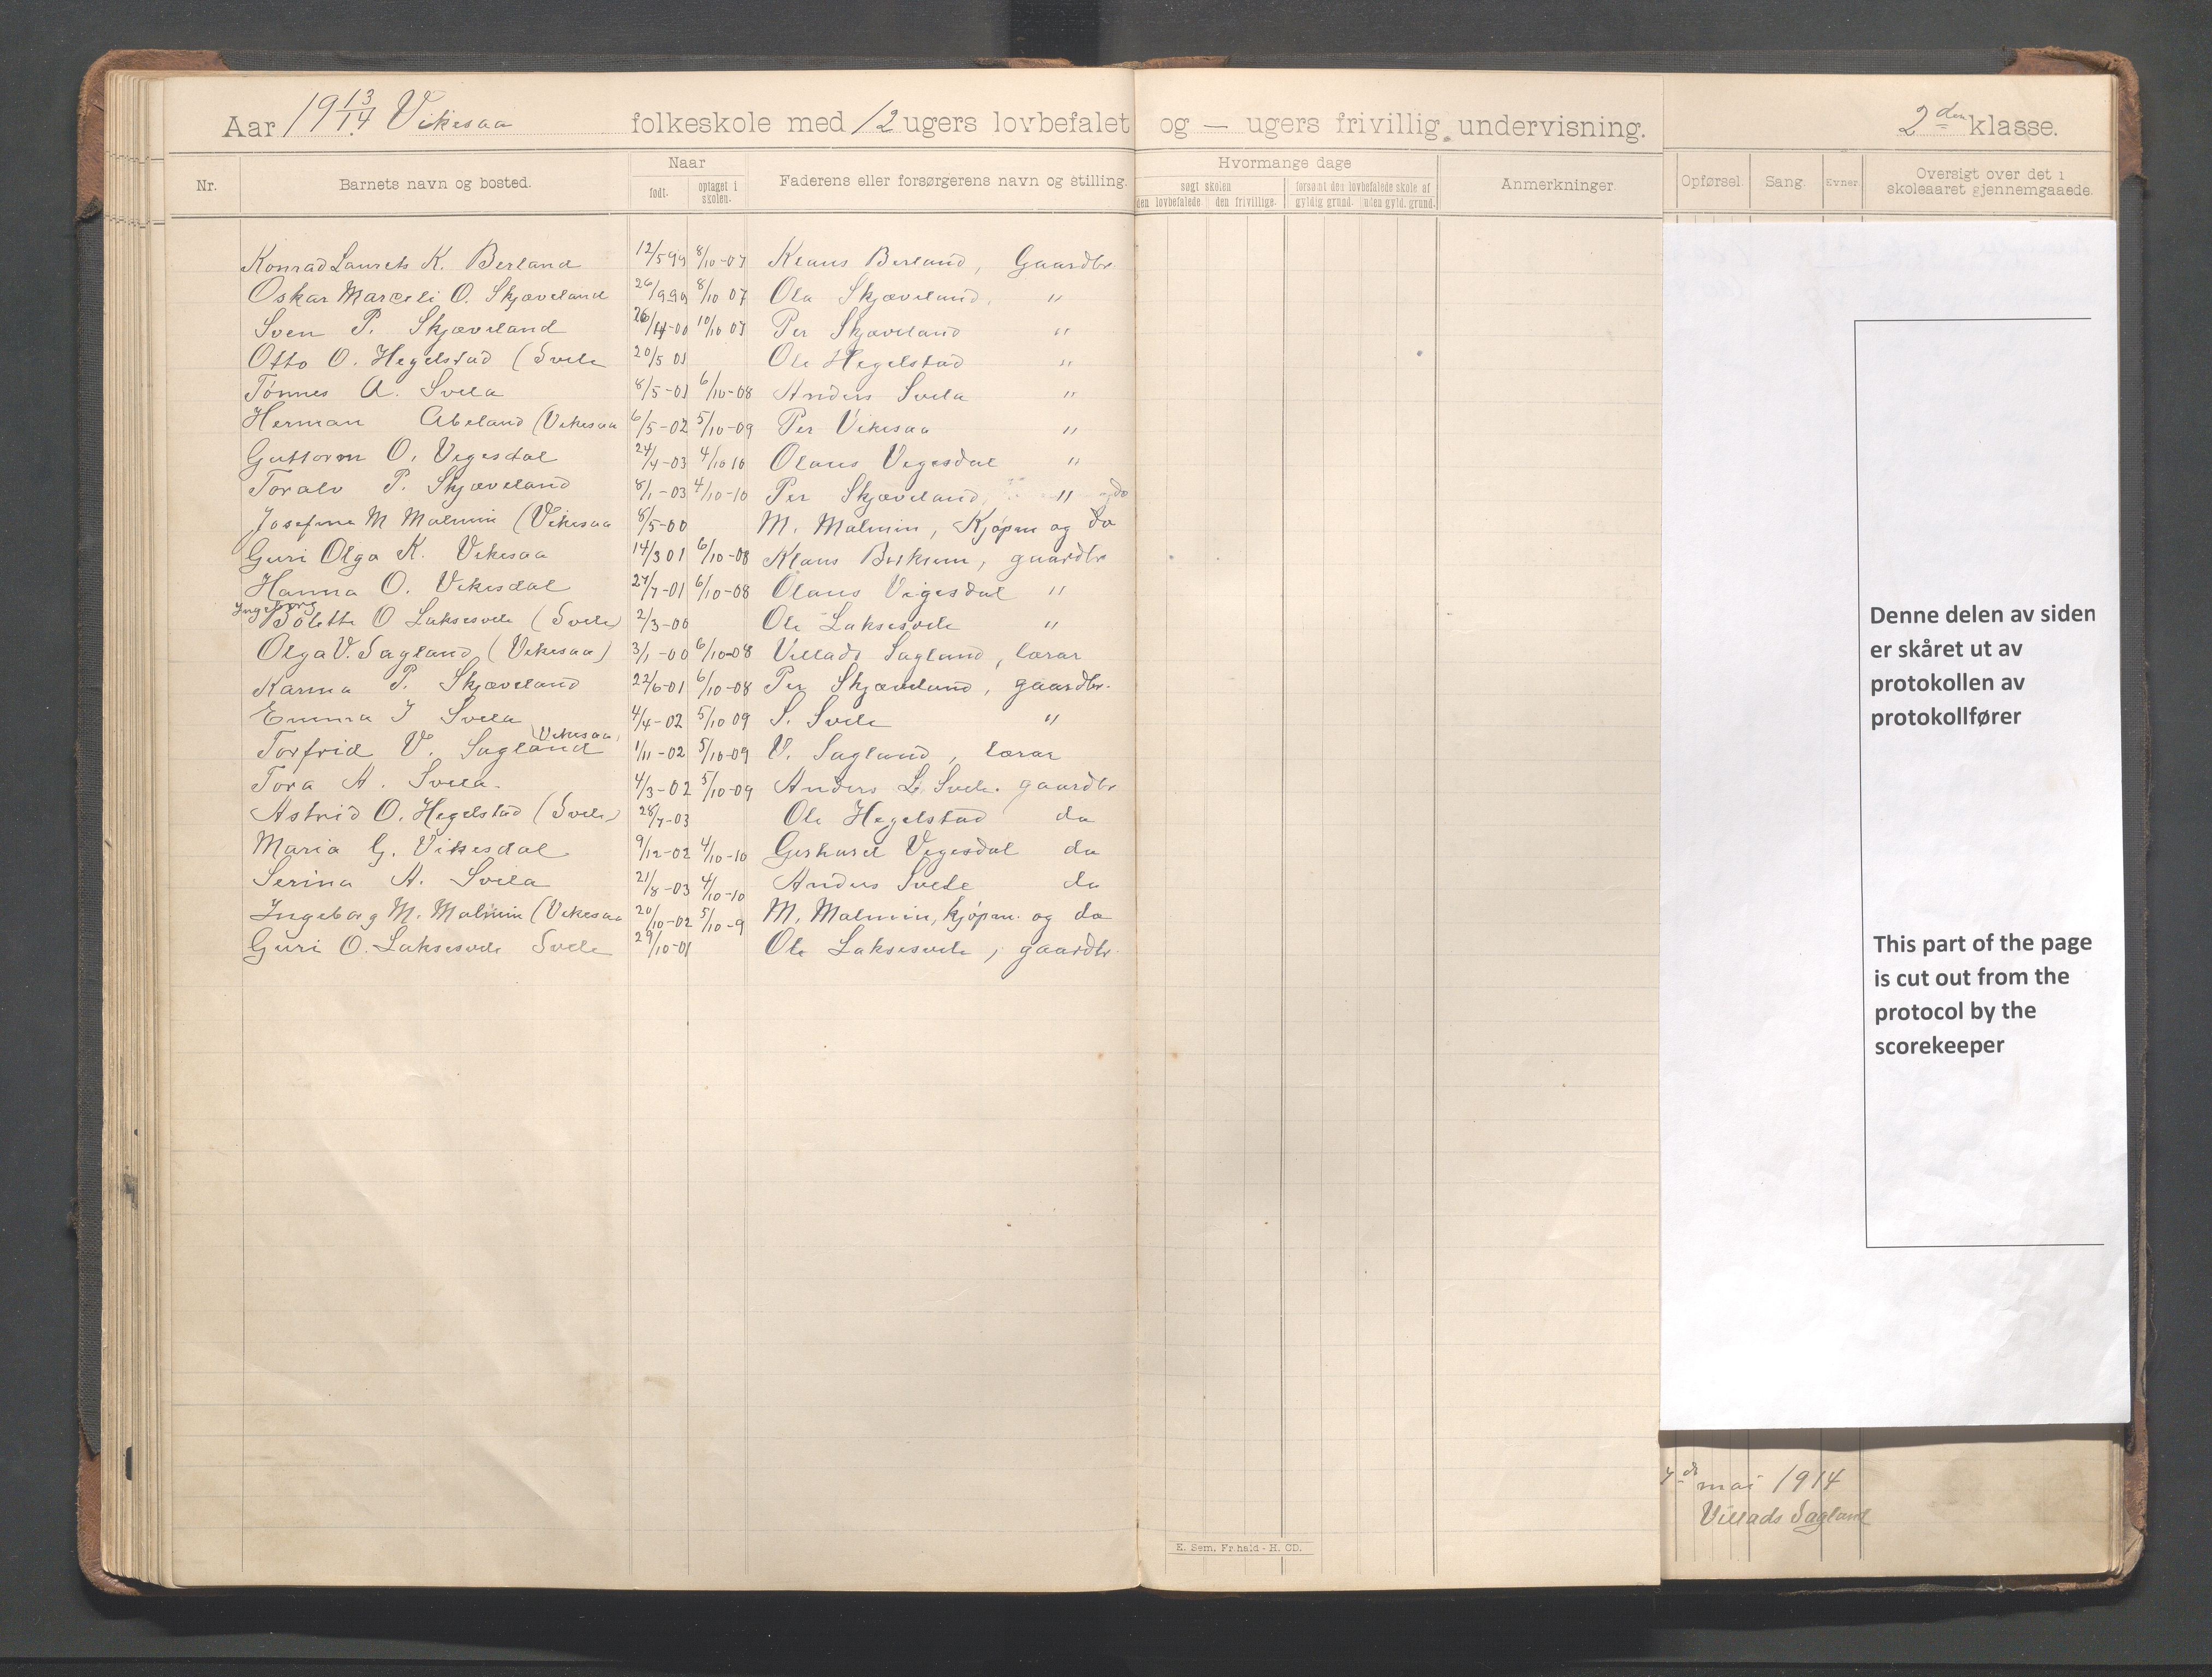 Aar 19 13/14 Vikesaa folkeskole med 12 ugers lovbefalet og — ugers frivillig undervisning. 2den klasse.
Nr. Barnets navn og bosted. Naar født. optaget i skolen. Faderens eller forsørgerens navn og stilling. Hvormange dage søgt skolen den lovbefalede. den frivillige. forsømt den lovbefalede skole af gyldig grund. uden gyld. grund. Anmerkninger. Opførsel. Sang. Evner Oversigt over det i skoleaaret gjennemgaaede.
Konrad Laurets K. Berland 12/5 99 8/10-07 Klaus Berland, Gaardbr.
Oskar Marceli O. Skjæveland 26/9 99 8/10 07 Ola Skjæveland, "
Sven P. Skjæveland 26/4-00 10/10 07 Per Skjæveland "
Otto O. Hegelstad (Svele 20/5 01 Ole Hegelstad "
Tønnes A. Svela 8/5-01 6/10-08 Anders Svela "
Herman Abeland (Vikesaa 6/5-02 5/10-09 Per Vikesaa "
Guttorm O. Vigesdal 24/4-03 4/10 10 Olaus Vigesdal "
Toralv P. Skjæveland 8/1-03 4/10-10 Per Skjæveland, "
Josefine M Malmin (Vikesaa 8/5-00 M. Malmin, Kjøpm og do
Guri Olga K. Vikesaa 14/3 01 6/10-08 Klaus Birkrem, gaardbr
Hanna O. Vikesdal 27/7-01 6/10-08 Olaus Vigesdal "
Ingeborg Bolette O Laksesvele (Svele) 2/3-00 Ole Laksesvele "
Olga V. Sagland (Vikesaa) 3/1-00 6/10-08 Villads Sagland, lærar
Karina P. Skjæveland 22/6-01 6/10-08 Per Skjæveland, gaardbr.
Emma I Svela 4/4-02 5/10 09 S. Svele "
Torfrid V. Sagland (Vikesaa) 1/11-02 5/10-09 V. Sagland, lærar
Tora A. Svela. 4/3-02 5/10-09 Anders L. Svele. gaardbr
Astrid O. Hegelstad (Svele) 28/7-03 Ole Hegelstad do
Maria G. Vikesdal 9/12-02 4/10-10 Gerhard Vigesdal do
Serina A. Svela 21/8-03 4/10-10 Anders Svele do
Ingeborg M. Malmin (Vikesaa 20/10-02 5/10-9 M. Malmin, kjøpm. og do
Guri O. Laksesvele Svele 29/10-01 Ole Laksesvele, gaardbr.
Denne delen av siden
er skåret ut av
protokollen av
protokollfører
This part of the page
is cut out from the
protocol by the
scorekeeper
mai 1914
Villads Sagland
E. Sem, Fr.hald - H. CD.